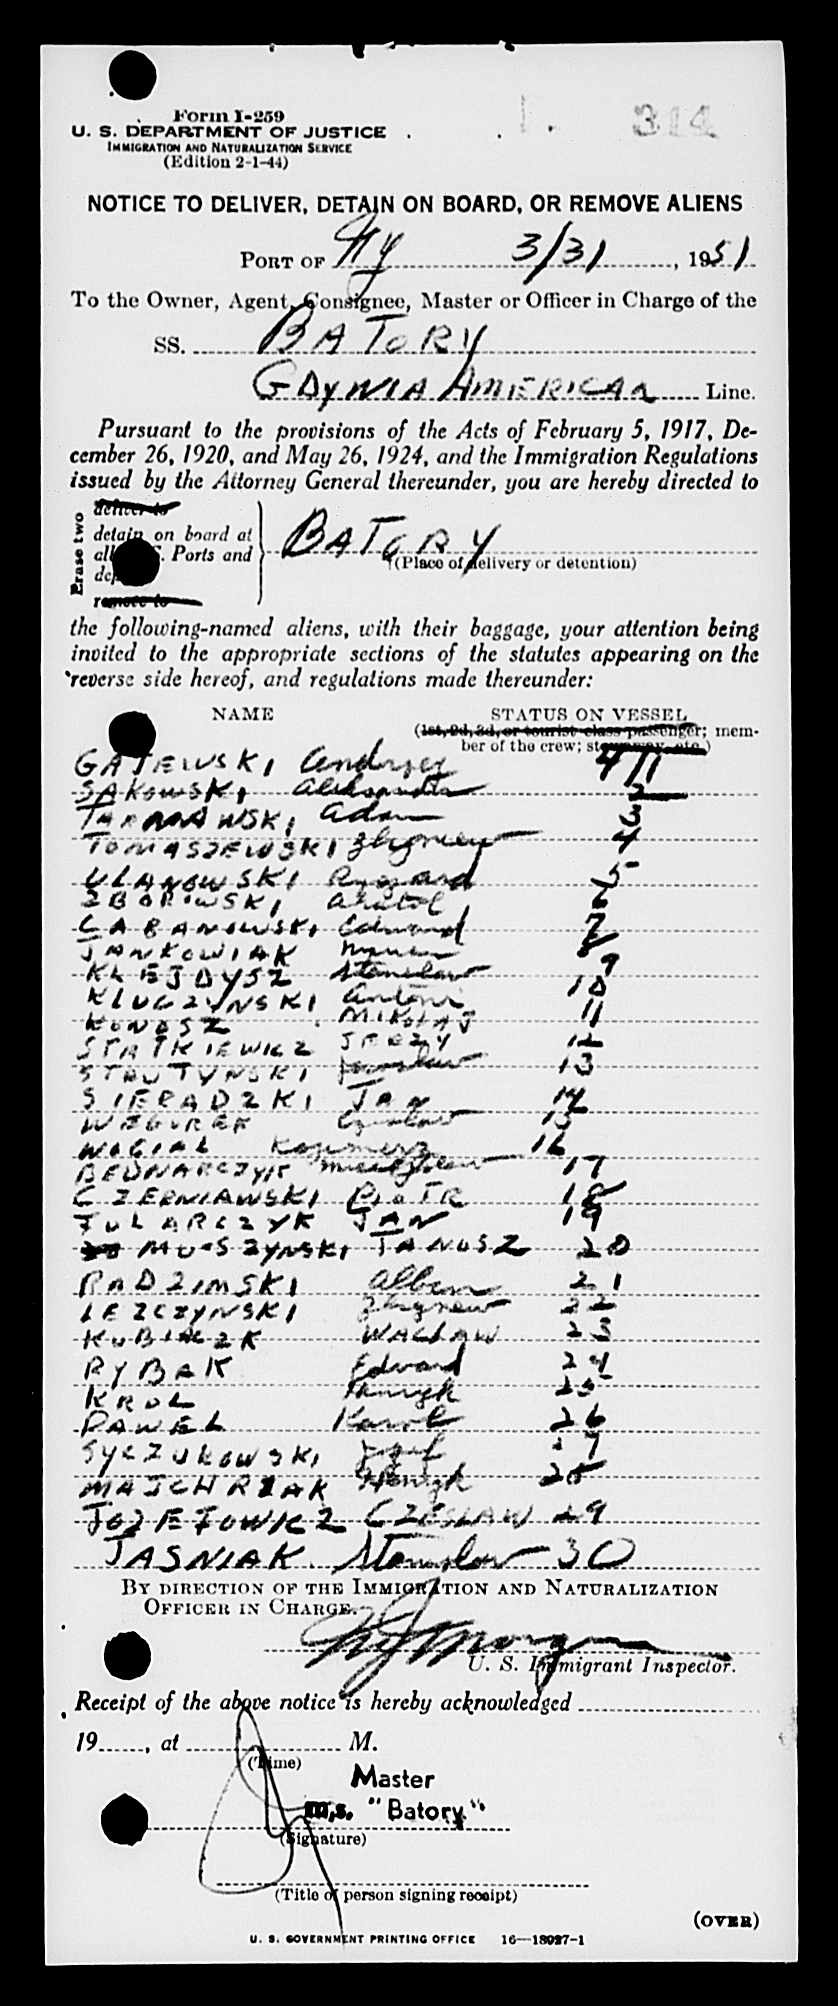 314
Form I-259
U. S. DEPARTMENT OF JUSTICE
IMMIGRATION AND NATURALIZATION SERVICE
(Edition 2-1-44)
NOTICE TO DELIVER, DETAIN ON BOARD, OR REMOVE ALIENS
PORT OF NY 3/31, 1951
To the Owner, Agent, Consignee, Master or Officer in Charge of the
SS. BATORY
GDYNIA AMERICAN Line.
Pursuant to the provisions of the Acts of February 5, 1917, De-
cember 26, 1920, and May 26, 1924, and the Immigration Regulations
issued by the Attorney General thereunder, you are hereby directed to
Erase two
deliver to
detain on board at
all U. S. Ports and
remove to
BATORY
(Place of delivery or detention)
the following-named aliens, with their baggage, your attention being
invited to the appropriate sections of the statutes appearing on the
reverse side hereof, and regulations made thereunder:
NAME STATUS ON VESSEL
(1st, 2d, 3d, or tourist class passenger; mem-
ber of the crew; stowaway, etc.)
GAJEWSKI Andrzej 1
SAKOWSKI Aleksander 2
TARNAWSKI Adam 3
TOMASZEWSKI Zbigniew 4
ULANOWSKI Ryszard 5
ZBOROWSKI 6
CABANOWSKI Edward 7
JANKOWIAK 8
KLEJDYSZ Stanislaw 9
KLUCZYNSKI Antoni 10
KONOSZ MIKOLAJ 11
STATKIEWICZ JERZY 12
STRUTYNSKI Jaroslaw 13
SIERADZKI JAN 14
WEGOREK Czeslaw 15
WOCIAL Kazimierz 16
BEDNARCZYK Mieczyslaw 17
CZERNIAWSKI PIOTR 18
TULARCZYK JAN 19
MUSZYNSKI JANUSZ 20
RADZIMSKI Albin 21
LEZCZYNSKI Zbigniew 22
KUBIACZK WACLAW 23
RYBAK Edward 24
KROL Henryk 25
PAWEL Karol 26
SYCZUKOWSKI Jozef 27
MAJCHRZAK Henryk 28
JOZEFOWICZ CZESLAW 29
JASNIAK Stanislaw 30
BY DIRECTION OF THE IMMIGRATION AND NATURALIZATION
OFFICER IN CHARGE.
Morgan
U. S. Immigrant Inspector.
Receipt of the above notice is hereby acknowledged
19, at M.
(Time)
Master
m.s. "Batory"
(Signature)
(Title of person signing receipt)
(OVER)
U. S. GOVERNMENT PRINTING OFFICE 16—18927-1